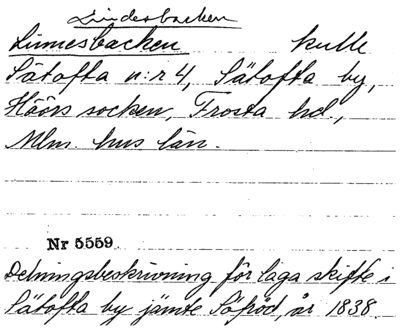 Lindesbacken
Linnesbacken kulle
Sätofta n:r 4, Sätofta by,
Höörs socken, Frosta hd.,
Mlm. hus län.
Nr 5559.
Delningsbeskrivning för laga skifte i
Sätofta by jämte Säfröd, år 1838.